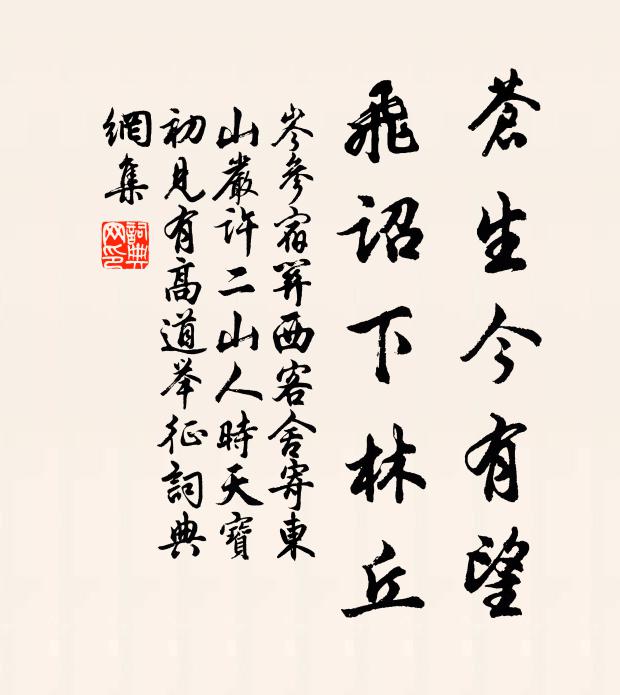 蒼生今有望
飛詔下林丘
岑參宿關西客舍寄東
山嚴許二山人時天寶
初見有高道举征詞典
網集
詞典
网印